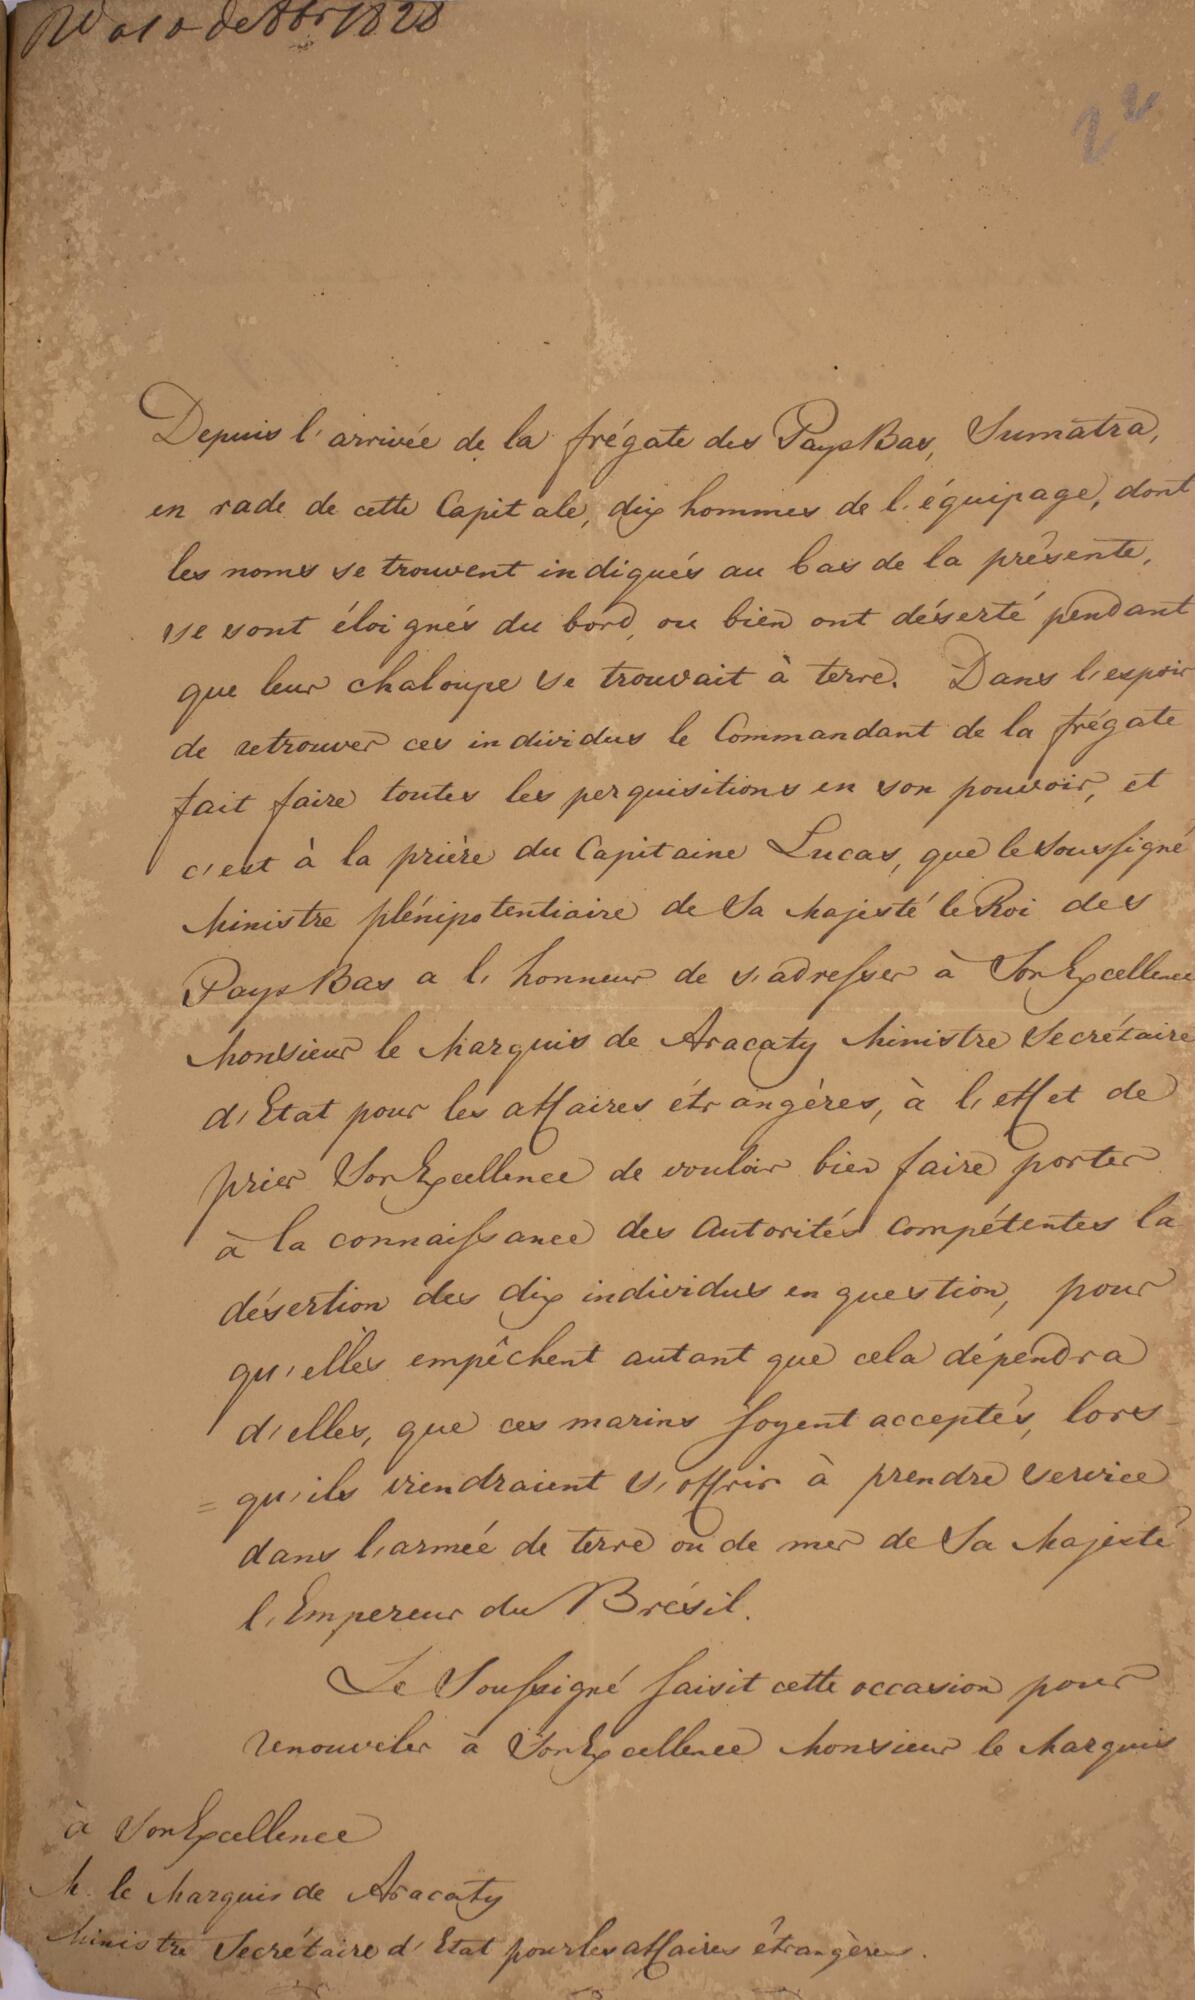 de Abr 1828
Depuis l'arrivée de la frégate des Pays Bas, Sumatra,
en rade de cette Capitale, dix hommes de l'équipage, dont
les noms se trouvent indiqués au bas de la présente,
se sont éloignés du bord, ou bien ont déserté pendant
que leur chaloupe se trouvait à terre. Dans l'espoir
de retrouver ces individus le Commandant de la frégate
fait faire toutes les perquisitions en son pouvoir, et
c'est à la prière du Capitaine Lucas, que le Soussigné
Ministre plénipotentiaire de Sa Majesté le Roi des
Pays Bas a l'honneur de s'adresser à Son Excellence
Monsieur le Marquis de Aracaty Ministre Secrétaire
d'Etat pour les affaires étrangères, à l'effet de
prier Son Excellence de vouloir bien faire porter
à la connaissance des Autorités compétentes la
désertion des dix individus en question, pour
qu'elles empêchent autant que cela dépendra
d'elles, que ces marins soyent acceptés, lors-
= qu'ils viendraient s'offrir à prendre service
dans l'armée de terre ou de mer de Sa Majesté
l'Empereur du Brésil.
Le Soussigné saisit cette occasion pour
renouveler à Son Excellence Monsieur le Marquis
à Son Excellence
M. le Marquis de Aracaty
Ministre Secrétaire d'Etat pour les affaires étrangères.